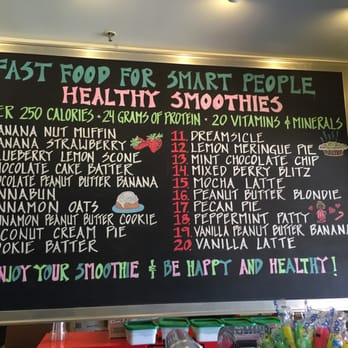 FAST FOOD FOR SMART PEOPLE
HEALTHY SMOOTHIES
ER 250 CALORIES • 24 GRAMS OF PROTEIN • 20 VITAMINS & MINERALS
ANANA NUT MUFFIN
ANANA STRAWBERRY
LUEBERRY LEMON SCONE
HOCOLATE CAKE BATTER
HOCOLATE PEANUT BUTTER BANANA
INNABUN
INNAMON OATS
INNAMON PEANUT BUTTER COOKIE
OCONUT CREAM PIE
OOKIE BATTER
11. DREAMSICLE
12. LEMON MERINGUE PIE
13. MINT CHOCOLATE CHIP
14. MIXED BERRY BLITZ
15. MOCHA LATTE
16. PEANUT BUTTER BLONDIE
17. PECAN PIE
18. PEPPERMINT PATTY
19. VANILLA PEANUT BUTTER BANANA
20. VANILLA LATTE
NJOY YOUR SMOOTHIE & BE HAPPY AND HEALTHY!